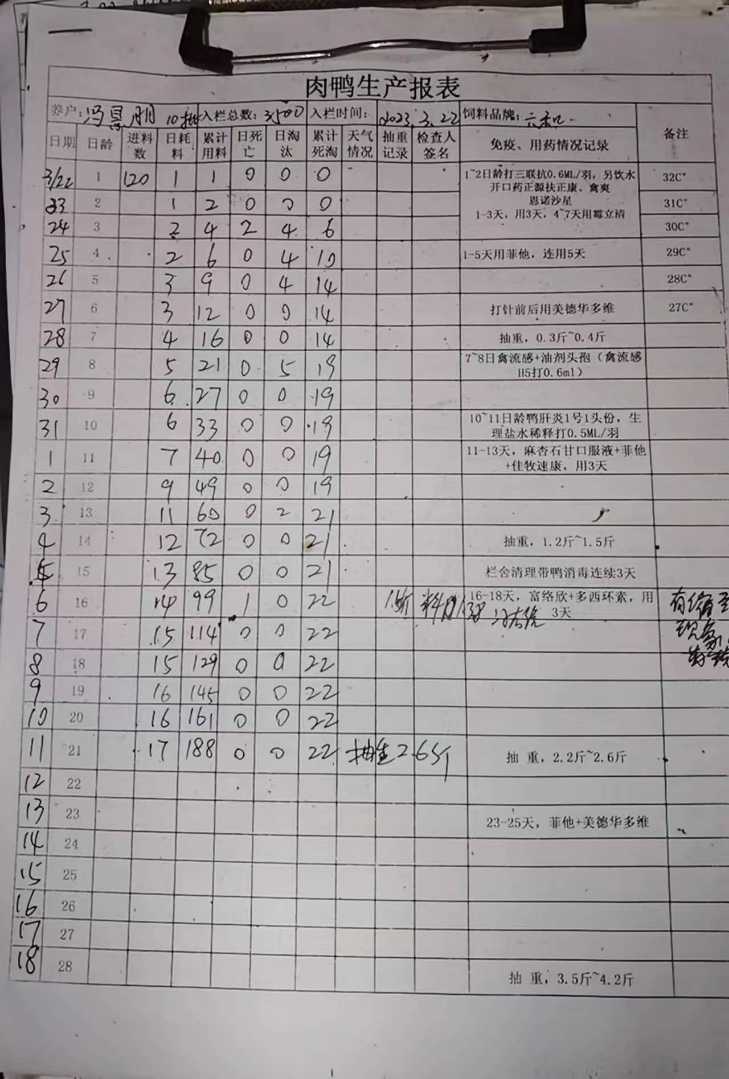 肉鸭生产报表
养户: 冯 明 10批 入栏总数: 3500 入栏时间: 2023.3.22 饲料品牌: 六和 备注
日期 日龄 进料数 日耗料 累计用料 日死亡 日淘汰 累计死淘 天气情况 抽重记录 检查人签名 免疫、用药情况记录
3/22 1 120 1 1 0 0 0 1~2日龄打三联抗0.6ML/羽,另饮水 32C°
开口药正源扶正康、禽爽
恩诺沙星
1-3天,用3天,4~7天用霉立清
23 2 1 2 0 0 0 31C°
24 3 2 4 2 4 6 30C°
25 4 2 6 0 4 10 1-5天用菲他,连用5天 29C°
26 5 3 9 0 4 14 28C°
27 6 3 12 0 0 14 打针前后用美德华多维 27C°
28 7 4 16 0 0 14 抽重,0.3斤~0.4斤
29 8 5 21 0 5 19 7~8日禽流感+油剂头孢(禽流感
H5打0.6ml)
30 9 6 27 0 0 19
31 10 6 33 0 0 19 10~11日龄鸭肝炎1号1头份,生
理盐水稀释打0.5ML/羽
1 11 7 40 0 0 19 11-13天,麻杏石甘口服液+菲他
+佳牧速康,用3天
2 12 9 49 0 0 19
3 13 11 60 0 2 21
4 14 12 72 0 0 21 抽重,1.2斤~1.5斤
5 15 13 85 0 0 21 栏舍清理带鸭消毒连续3天
6 16 14 99 1 0 22 16-18天,富络欣+多西环素,用
3天
7 17 15 114 0 0 22
8 18 15 129 0 0 22
9 19 16 145 0 0 22
10 20 16 161 0 0 22
11 21 17 188 0 0 22 抽重2.6斤 抽 重,2.2斤~2.6斤
12 22
13 23 23-25天,菲他+美德华多维
14 24
15 25
16 26
17 27
18 28 抽 重,3.5斤~4.2斤